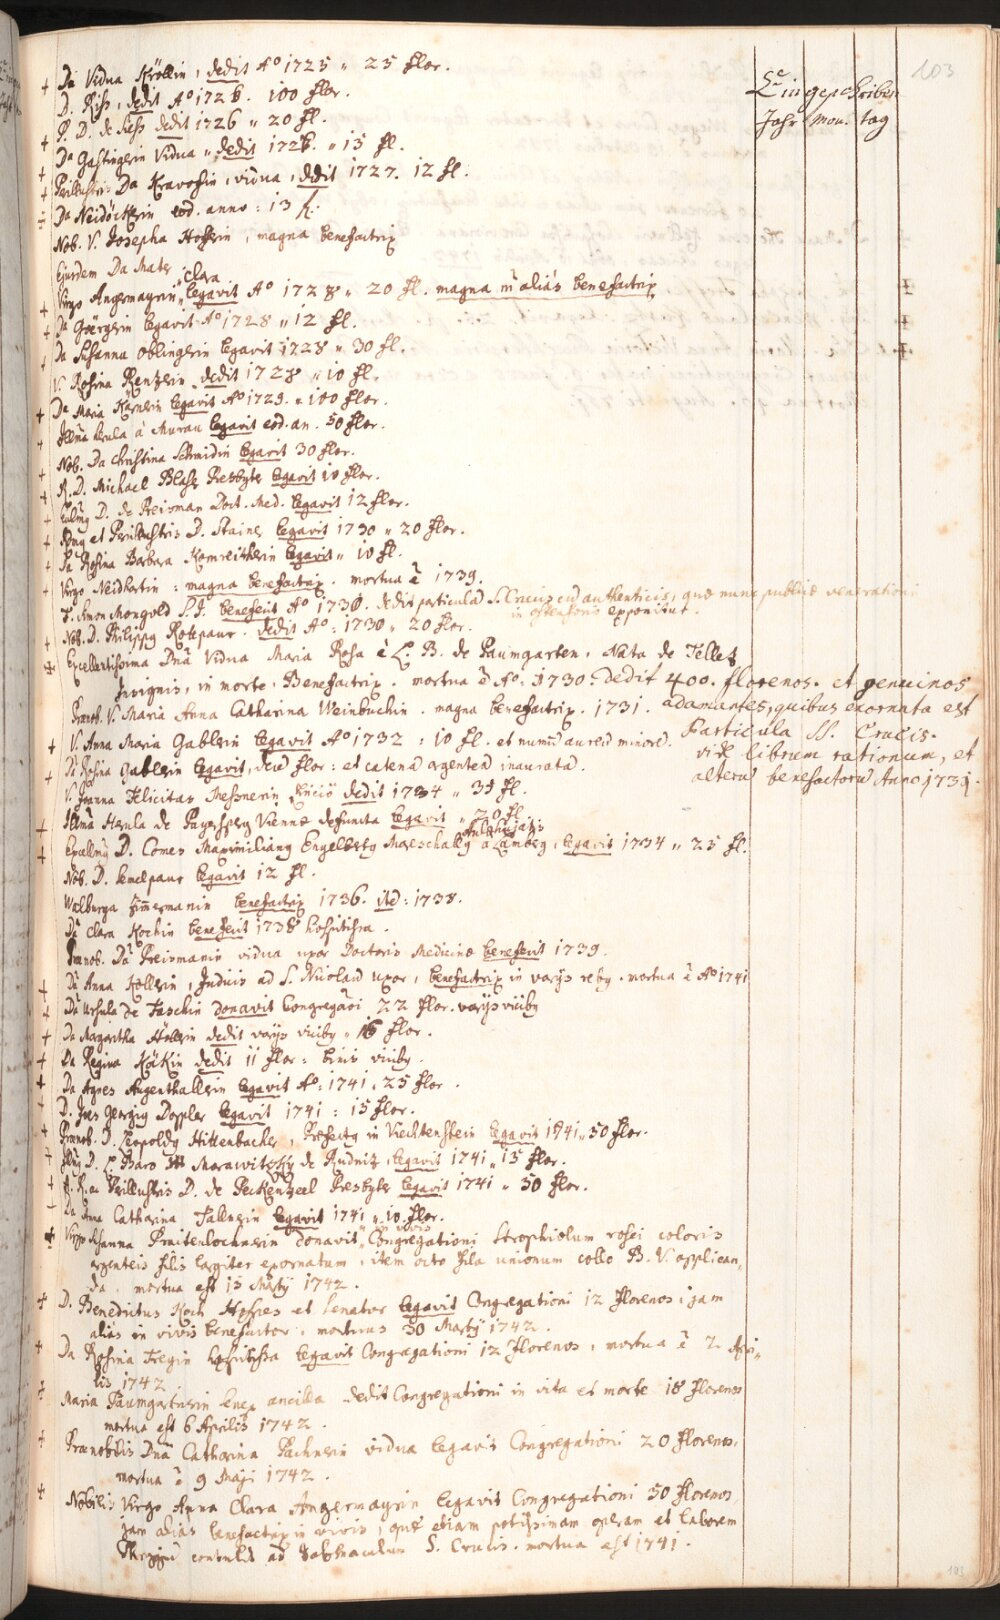 103
Eingeschriben
Jahr mon. tag
Da Vidua Kröllin, dedit Ao 1725 " 25 flor.
D. Riss, dedit Ao 1726. 100 flor.
P. D. de Siess dedit 1726 " 20 fl.
Da Gastingerin Vidua " dedit 1726. " 15 fl.
Perillustris Da Kravogin, vidua, dedit 1727. 12 fl.
Da Neidöckherin eod. anno: 13 fl.
Nob. V. Josepha Hofferin, magna benefactrix
Ejusdem Da Mater
Virgo Angermayrin " Clara legavit Ao 1728 " 20 fl. magna in aliàs benefactrix
Da Goërgerin legavit Ao 1728 " 12 fl.
Da Susanna Oblingerin legavit 1728 " 30 fl.
V. Rosina Rentzerin dedit 1728 " 10 fl.
Da Maria Kernerin legavit Ao 1729. " 100 flor.
Illma Herula à Murau legavit eod. an. 50 flor.
Nob. Da Christina Schmidin legavit 30 flor.
R. D. Michael Blass Presbyter legavit 10 flor.
D. de Preisman Doct. Med. legavit 12 flor.
et Perillustris D. Stainer legavit 1730 " 20 flor.
Da Rosina Barbara Kamreitherin legavit " 10 fl.
Virgo Neidhartin: magna benefactrix. mortua ē 1739.
P. Simon Mongold S. J. benefecit Ao 1730. dedit particulā S. Crucis cū authenticis, quae nunc publicae venerationi
in ostensorio exponitur.
Nob. D. Philippg Rottpaur. dedit Ao: 1730 " 20 flor.
Excellentissima Dnā Vidua Maria Rosa à L. B. de Paumgarten, Nata de Tellet
Insignis, in morte, Benefactrix. mortua ē Ao: 1730. Dedit 400. florenos. et genuinos
adamantes, quibus exornata est
Particula SS. Crucis.
vide librum rationum, et
alterū benefactorū Anno 1731.
Praenob. V. Maria Anna Catharina Weinbuchin. magna benefactrix. 1731.
V. Anna Maria Gablerin legavit Ao 1732: 10 fl. et numū aureū minorē.
Da Rosina Gablerin legavit, flor: et catenā argenteā inauratā.
V. Joanna Felicitas Messnerin dedit 1734 " 31 fl.
Illmā Herula de Viennae defuncta legavit " 20 fl.
D. Comes Maximiliang Engelbertg Mareschallg à Lamberg, legavit 1734 " 25 fl.
Nob. D. legavit 12 fl.
Walburga Zimermanin benefactrix 1736. itē: 1738.
Da Clara Kochin benefecit 1738 hospitissa.
Praenob. Da Preismanin vidua uxor Doctoris Medicinae benefecit 1739.
Da Anna Kollerin, Judicis ad S. Nicolaū uxor, benefactrix in varijs rebg. mortua ē Ao 1741
Da Ursula de Faschin donavit Congregaōi 22 flor. varijs vicibg
Da Margaritha Höllerin dedit varijs vicibg " 16 flor.
Da Regina Köckin dedit 11 flor: binis vicibg.
Da Agnes Augenthallerin legavit Ao: 1741. 25 flor.
D. Joes Georgig Doppler legavit 1741: 15 flor.
Praenob. D. Leopoldg Hittenbacher, Praefectg in Viechtenstein legavit 1741 " 50 flor.
D. L. Baro Morawitzky de Rudnitz, legavit 1741 " 15 flor.
A. R. ac Perillustris D. de Peckenzeel Presbyter legavit 1741 " 50 flor.
Da Anna Catharina Fallnerin legavit 1741 " 10 flor.
Virgo Susanna Preitenlochnerin donavit in vivis Congregationi strophiolum rosei coloris
argenteis filis largiter exornatum, item octo fila unionum collo B. V. applican-
da. mortua est 13 Martij 1742.
D. Benedictus Koch Hospes et Senator legavit Congregationi 12 florenos, jam
aliàs in vivis benefactor. mortuus 30 Martij 1742.
Da Rosina Fregin hospitissa legavit Congregationi 12 florenos, mortua ē 2. Apri-
lis 1742
Maria Paumgartnerin senex ancilla dedit Congregationi in vita et morte 18 florenos
mortua est 6 Aprilis 1742.
Praenobilis Dnā Catharina Pachnerin vidua legavit Congregationi 20 florenos,
mortua ē 9 Maji 1742.
Nobilis Virgo Anna Clara Angermayrin legavit Congregationi 50 florenos
jam alias benefactrix in vivis, quae etiam potissimam operam et laborem
contulit ad Tabernaculum S. Crucis. mortua est 1741.
103